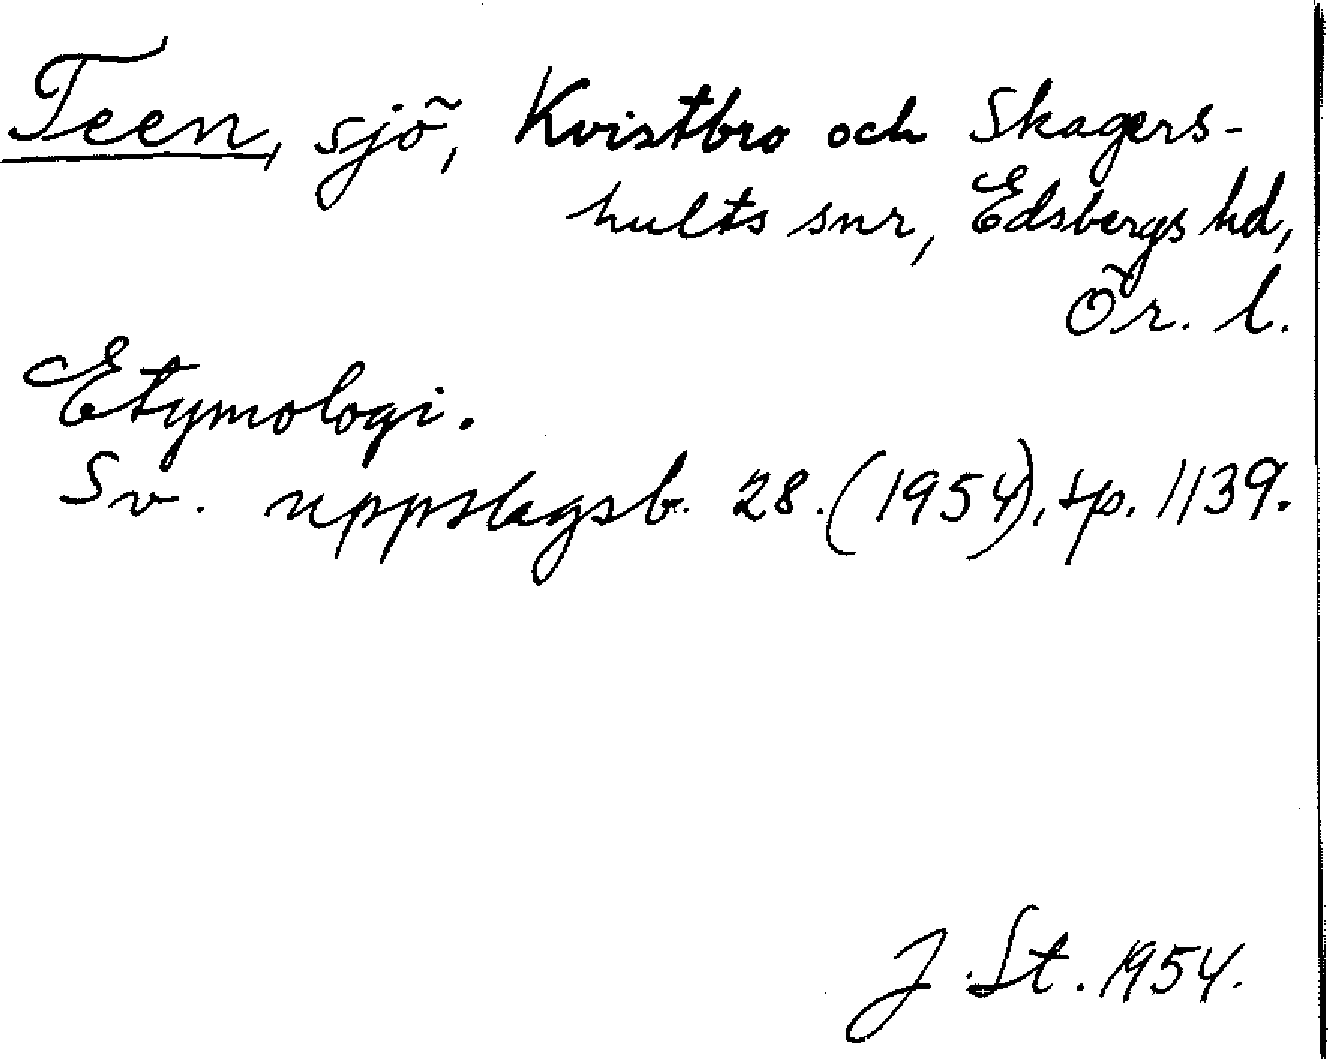 Teen, sjö, Kvistbro och Skagers-
hults snr, Edsbergs hd,
Ör. l.
Etymologi.
Sv. uppslagsb. 28. (1954), sp. 1139.
J. St. 1954.